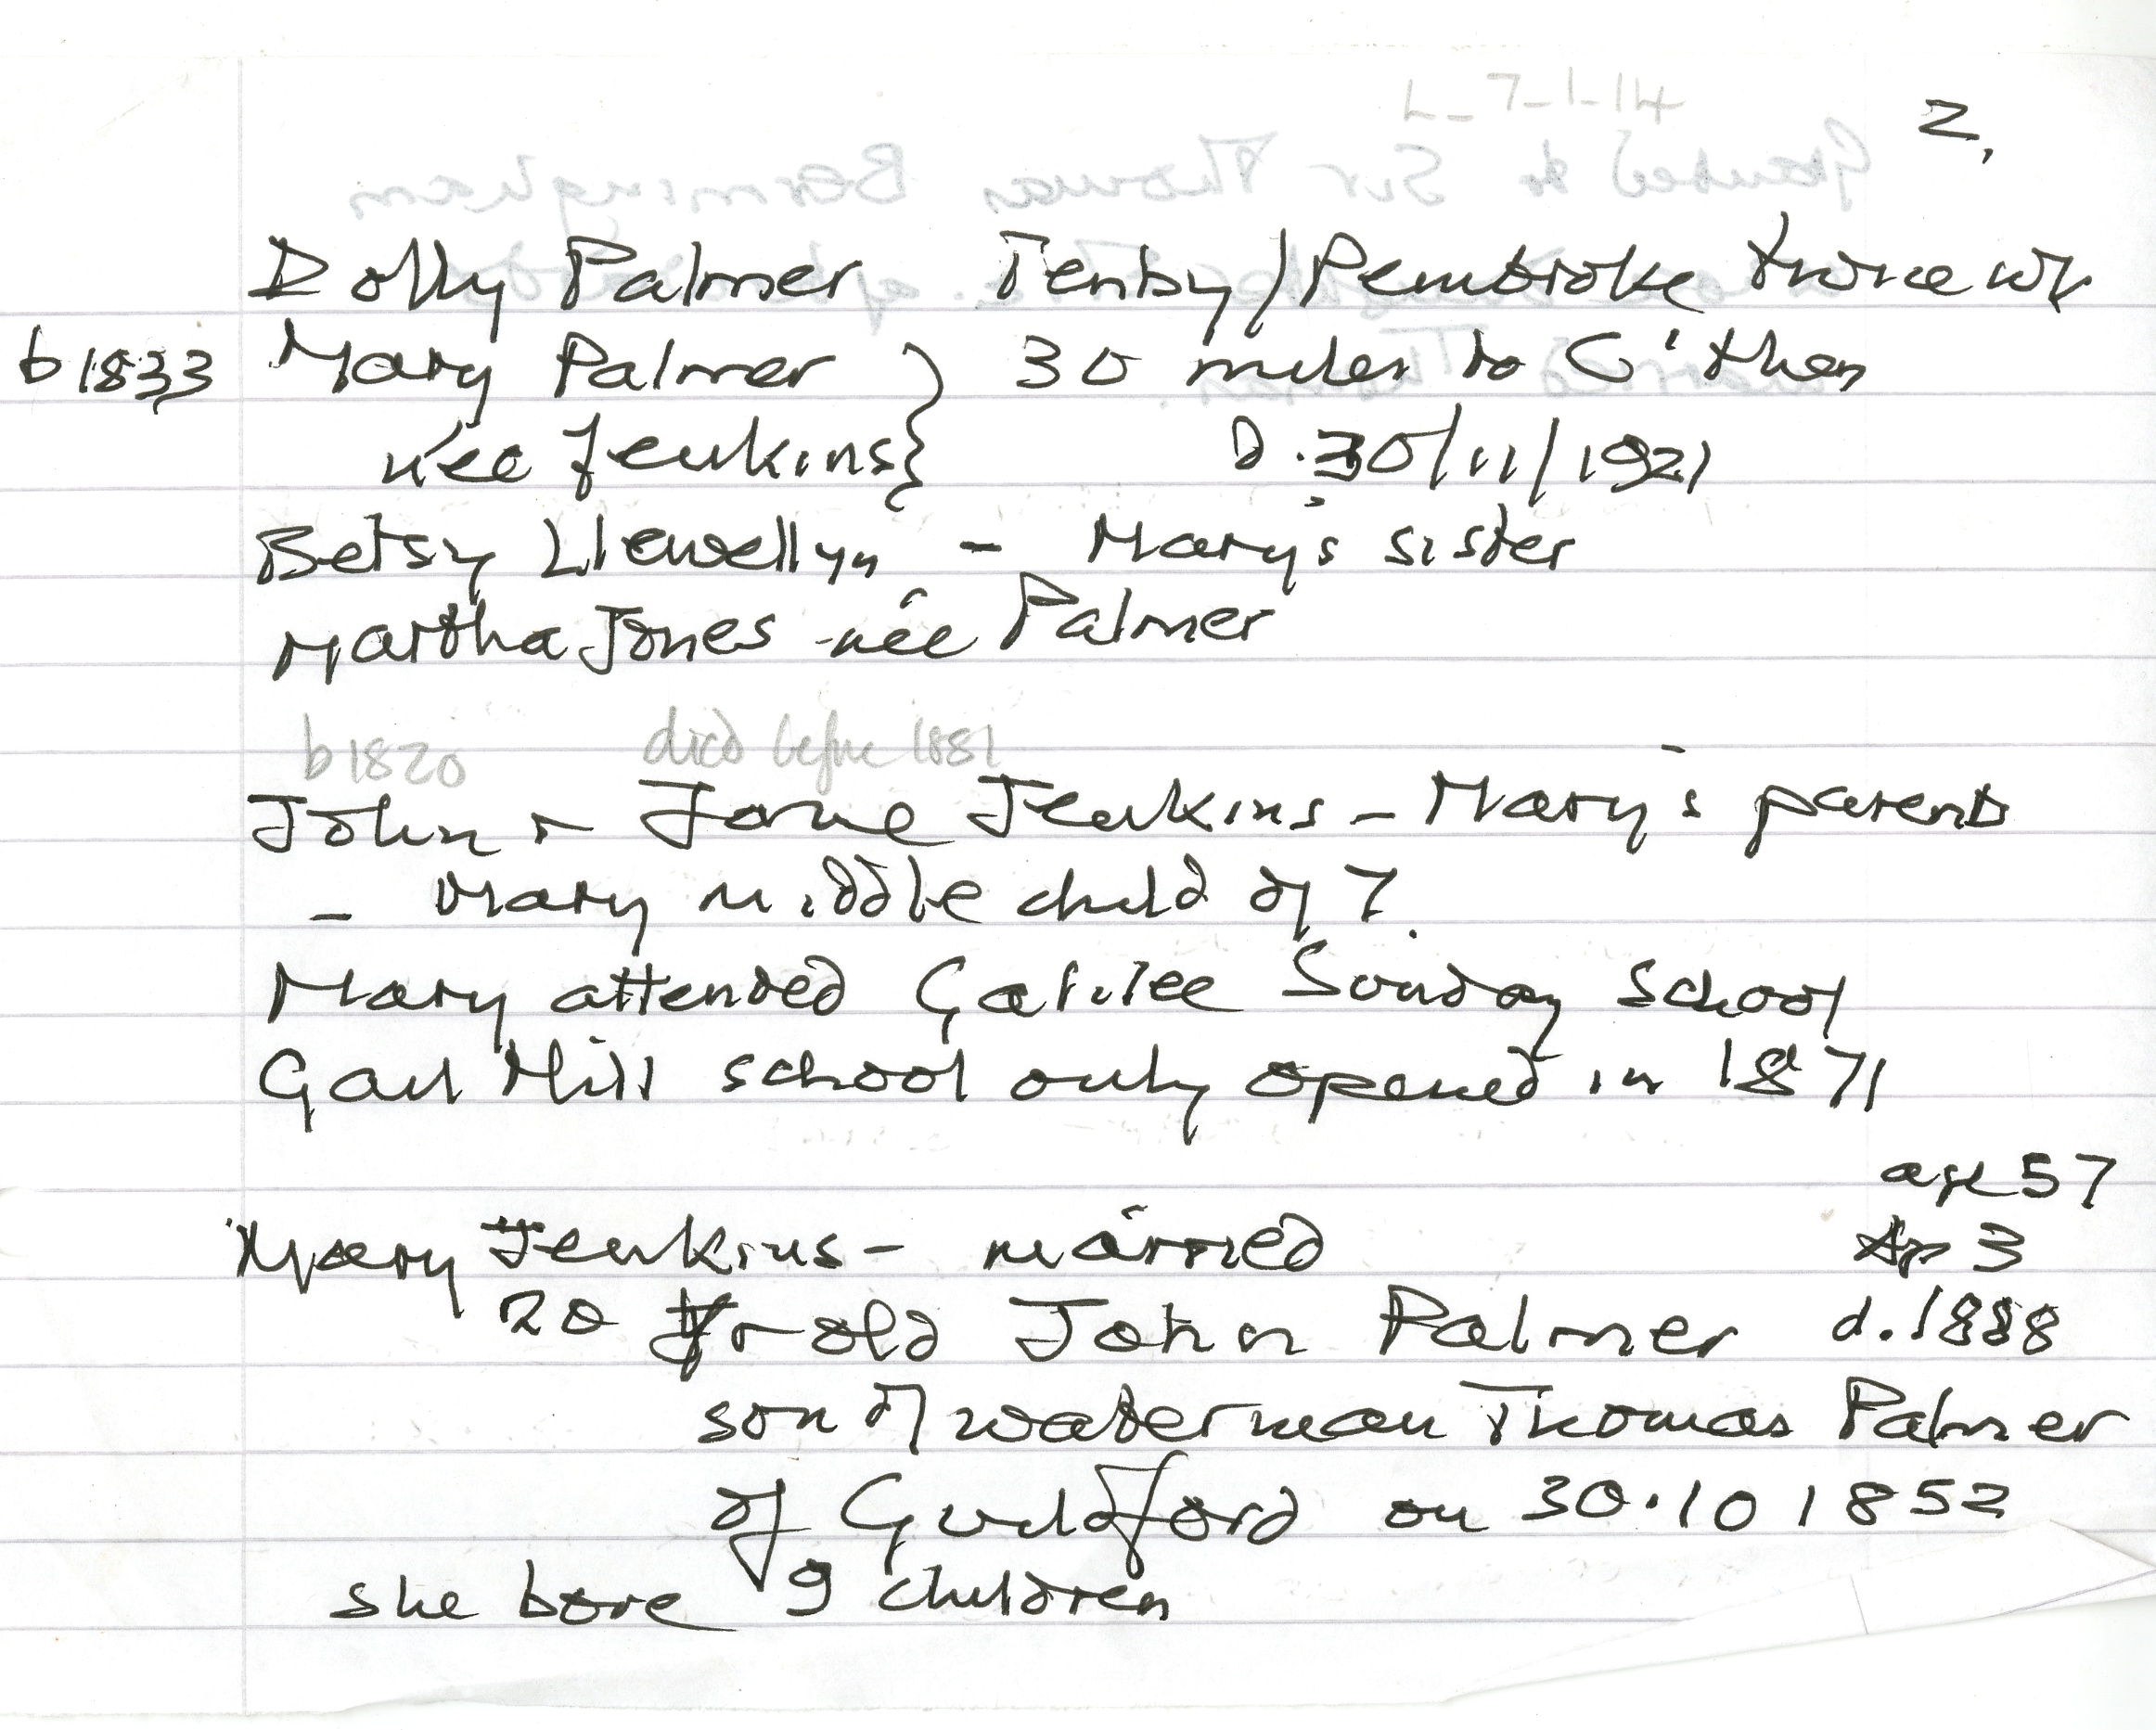 2.
Dolly Palmer Tenby/Pembroke twice wk
b 1833 Mary Palmer } 30 miles to C'then
née Jenkins } d. 30/11/1921
Betsy Llewellyn - Mary's sister
Martha Jones - née Palmer
b 1820 died before 1881
John & Jane Jenkins - Mary's parents
- Mary middle child of 7.
Mary attended Galilee Sunday School
Gail Mill school only opened in 1871
age 57
Ap 3
Mary Jenkins - married
20 yr old John Palmer d. 1888
son of waterman Thomas Palmer
of Guildford on 30.10 1852
she bore 9 children